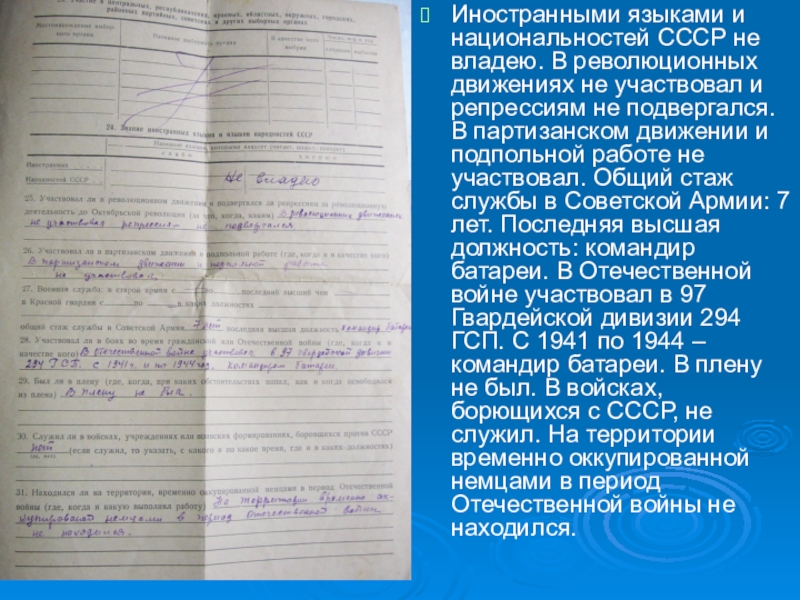 23. Участие в центральных, республиканских, краевых, областных, окружных, городских,
районных партийных, советских и других выборных органах
Местонахождение выбор-
ного органа
Название выборного органа
В качестве кого
выбран
24. Знание иностранных языков и языков народностей СССР
Иностранных
Народностей СССР
Не владею
25. Участвовал ли в революционном движении и подвергался ли репрессиям за революционную
деятельность до Октябрьской революции (за что, когда, каким) В революционных движениях
не участвовал репрессиям не подвергался
26. Участвовал ли в партизанском движении и подпольной работе (где, когда и в качестве кого)
В партизанском движении и подпольной работе
не участвовал.
27. Военная служба: в старой армии с по последний высший чин
в Красной гвардии с по в каких должностях
общий стаж службы в Советской Армии 7 лет последняя высшая должность командир батареи
28. Участвовал ли в боях во время гражданской или Отечественной войны (где, когда и в
качестве кого) В Отечественной войне участвовал в 97 гвардейской дивизии
294 ГСП. с 1941 г. и по 1944 год. командиром батареи.
29. Был ли в плену (где, когда, при каких обстоятельствах попал, как и когда освободился
из плена) В плену не был.
30. Служил ли в войсках, учреждениях или воинских формированиях, боровшихся против СССР
нет (если служил, то указать, с какого и по какое время, где и в каких должностях)
31. Находился ли на территории, временно оккупированной немцами в период Отечественной
войны (где, когда и какую выполнял работу) На территории временно ок-
купированной немцами в период Отечественной войны
не находился.
Иностранными языками и
национальностей СССР не
владею. В революционных
движениях не участвовал и
репрессиям не подвергался.
В партизанском движении и
подпольной работе не
участвовал. Общий стаж
службы в Советской Армии: 7
лет. Последняя высшая
должность: командир
батареи. В Отечественной
войне участвовал в 97
Гвардейской дивизии 294
ГСП. С 1941 по 1944 –
командир батареи. В плену
не был. В войсках,
борющихся с СССР, не
служил. На территории
временно оккупированной
немцами в период
Отечественной войны не
находился.